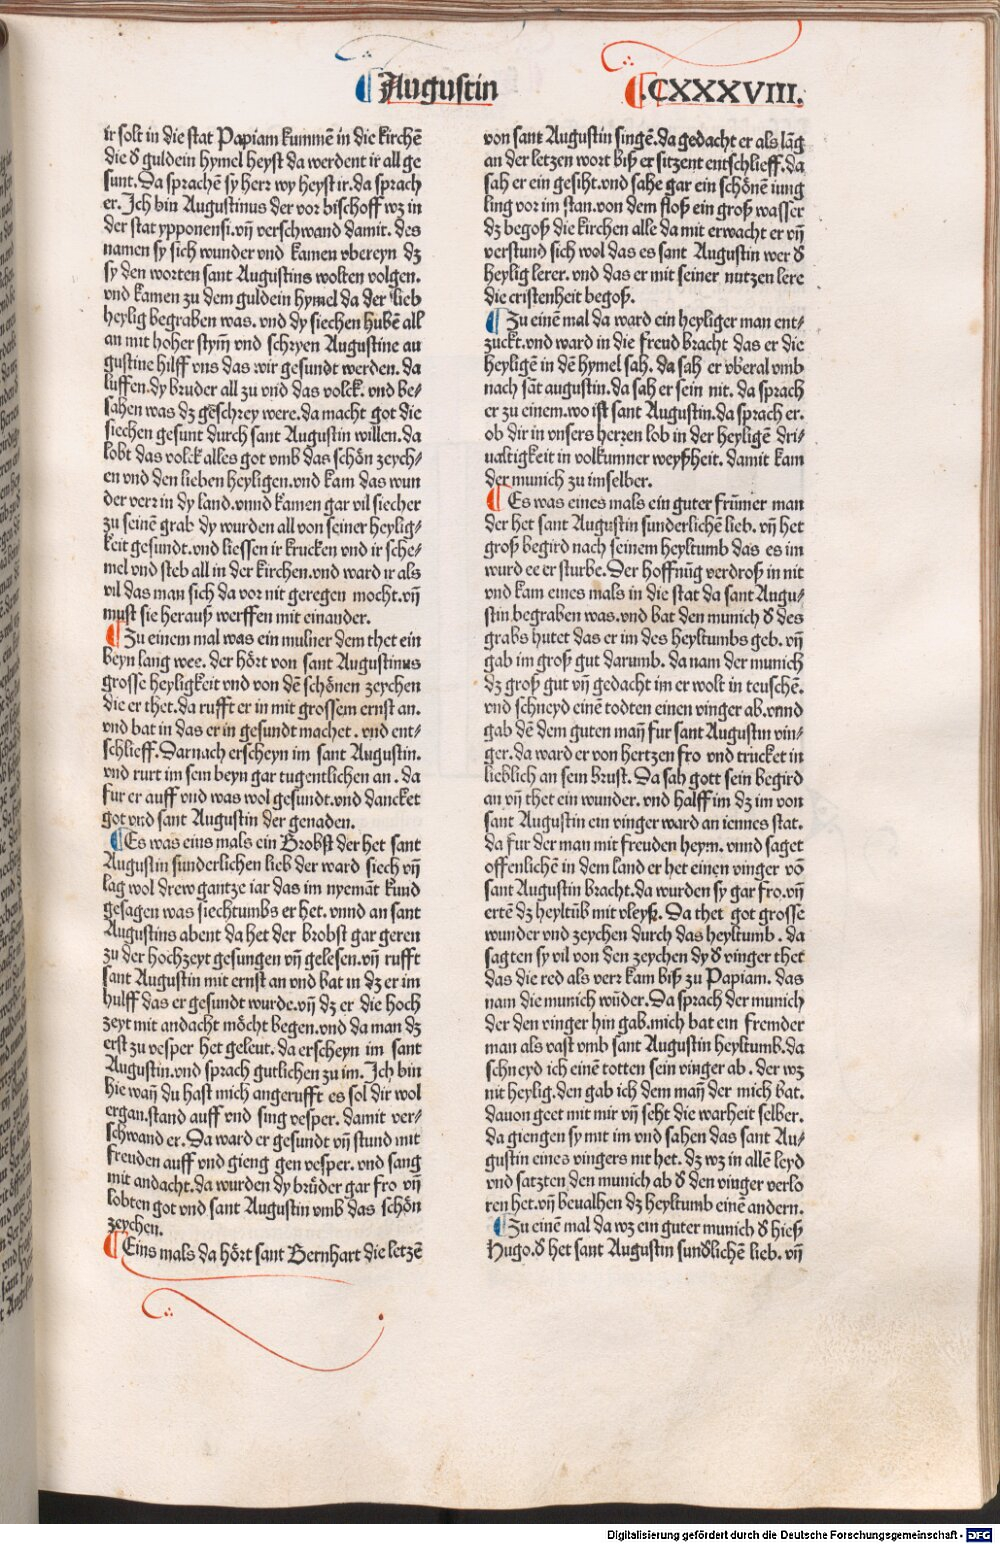 Augustin
.CXXXVIII.
ir solt in die stat Papiam kummē in die kirchē
die d̕ guldein hymel heyst da werdent ir all ge
sunt. Da sprachē sy herr wy heyst ir. da sprach
er. Ich bin Augustinus der vor bischoff wz in
der stat ypponensi. vñ verschwand damit. des
namen sy sich wunder vnd kamen vbereyn dz
sy den worten sant Augustins wolten volgen.
vnd kamen zu dem guldein hymel da der lieb
heylig begraben was. vnd dy siechen hubē all
an mit hoher stym̄ vnd schryen Augustine au
gustine hilff vns das wir gesundt werden. da
luffen. dy bruder all zu vnd das volck. vnd be⸗
sahen was dz geschrey were. da macht got die
siechen gesunt durch sant Augustin willen. da
lobt das volck alles got vmb das schön zeych⸗
en vnd den lieben heyligen. vnd kam das wun
der verr in dy land. vnnd kamen gar vil siecher
zu seinē grab dy wurden all von seiner heylig⸗
keit gesundt. vnd liessen ir krucken vnd ir sche⸗
mel vnd steb all in der kirchen. vnd ward ir als
vil das man sich da vor nit geregen mocht. vñ
must sie herauß werffen mit einander.
¶ Zu einem mal was ein mulner dem thet ein
beyn lang wee. der hört von sant Augustinus
grosse heyligkeit vnd von dē schönen zeychen
die er thet. da rufft er in mit grossem ernst an.
vnd bat in das er in gesundt machet. vnd ent⸗
schlieff. Darnach erscheyn im sant Augustin.
vnd rurt im sein beyn gar tugentlichen an. da
fur er auff vnd was wol gesundt. vnd dancket
got vnd sant Augustin der genaden.
¶ Es was eins mals ein Brobst der het sant
Augustin sunderlichen lieb der ward siech vñ
lag wol drew gantze iar das im nyemāt kund
gesagen was siechtumbs er het. vnnd an sant
Augustins abent da het der brobst gar geren
zu der hochzeyt gesungen vñ gelesen. vñ rufft
sant Augustin mit ernst an vnd bat in dz er im
hulff das er gesundt wurde. vñ dz er die hoch
zeyt mit andacht möcht began. vnd da man dz
erst zu vesper het geleut. da erscheyn im sant
Augustin. vnd sprach gutlichen zu im. Ich bin
hie wañ du hast mich angerufft es sol dir wol
ergan. stand auff vnd sing vesper. damit ver⸗
schwand er. Da ward er gesundt vñ stund mit
freuden auff vnd gieng gen vesper. vnd sang
mit andacht. da wurden dy brüder gar fro vñ
lobten got vnd sant Augustin vmb das schön
zeychen.
¶ Eins mals da hört sant Bernhart die letzē
von sant Augustin singē. da gedacht er als lāg
an der letzen wort biß er sitzent entschlieff. da
sah er ein gesiht. vnd sahe gar ein schönē iung
ling vor im stan. von dem floß ein groß wasser
dz begoß die kirchen alle da mit erwacht er vñ
verstund sich wol das es sant Augustin wer d̕
heylig lerer. vnd das er mit seiner nutzen lere
die cristenheit begoß.
¶ Zu einē mal da ward ein heyliger man ent⸗
zuckt. vnd ward in die freud bracht das er die
heyligē in dē hymel sah. da sah er vberal vmb
nach sāt augustin. da sah er sein nit. da sprach
er zu einem. wo ist sant Augustin. da sprach er.
ob dir in vnsers herren lob in der heyligē dri⸗
ualtigkeit in volkumner weyßheit. damit kam
der munich zu imselber.
¶ Es was eines mals ein guter frūmer man
der het sant Augustin sunderlichē lieb. vñ het
groß begird nach seinem heyltumb das es im
wurd ee er sturbe. Der hoffnūg verdroß in nit
vnd kam eines mals in die stat da sant Augu⸗
stin begraben was. vnd bat den munich d̕ des
grabs hutet das er im des heyltumbs geb. vñ
gab im groß gut darumb. da nam der munich
dz groß gut vñ gedacht im er wolt in teuschē.
vnd schneyd einē todten einen vinger ab. vnnd
gab dē dem guten mañ fur sant Augustin vin⸗
ger. da ward er von hertzen fro vnd trucket in
lieblich an sein brust. Da sah gott sein begird
an vñ thet ein wunder. vnd halff im dz im von
sant Augustin ein vinger ward an iennes stat.
da fur der man mit freuden heym. vnnd saget
offenlichē in dem land er het einen vinger vō
sant Augustin bracht. da wurden sy gar fro. vñ
ertē dz heyltūb mit vleyß. Da thet got grosse
wunder vnd zeychen durch das heyltumb. da
sagten sy vil von den zeychen dy d̕ vinger thet
das die red als verr kam biß zu Papiam. das
nam die munich wūder. Da sprach der munich
der den vinger hin gab. mich bat ein fremder
man als vast vmb sant Augustin heyltumb. da
schneyd ich einē totten sein vinger ab. der wz
nit heylig. den gab ich dem mañ der mich bat.
dauon geet mit mir vñ seht die warheit selber.
da giengen sy mit im vnd sahen das sant Au⸗
gustin eines vingers nit het. dz wz in allē leyd
vnd satzten den munich ab d̕ den vinger verlo
ren het. vñ beualhen dz heyltumb einē andern.
¶ Zu einē mal da wz ein guter munich d̕ hieß
Hugo. d̕ het sant Augustin sund̕lichē lieb. vñ
Digitalisierung gefördert durch die Deutsche Forschungsgemeinschaft - DFG